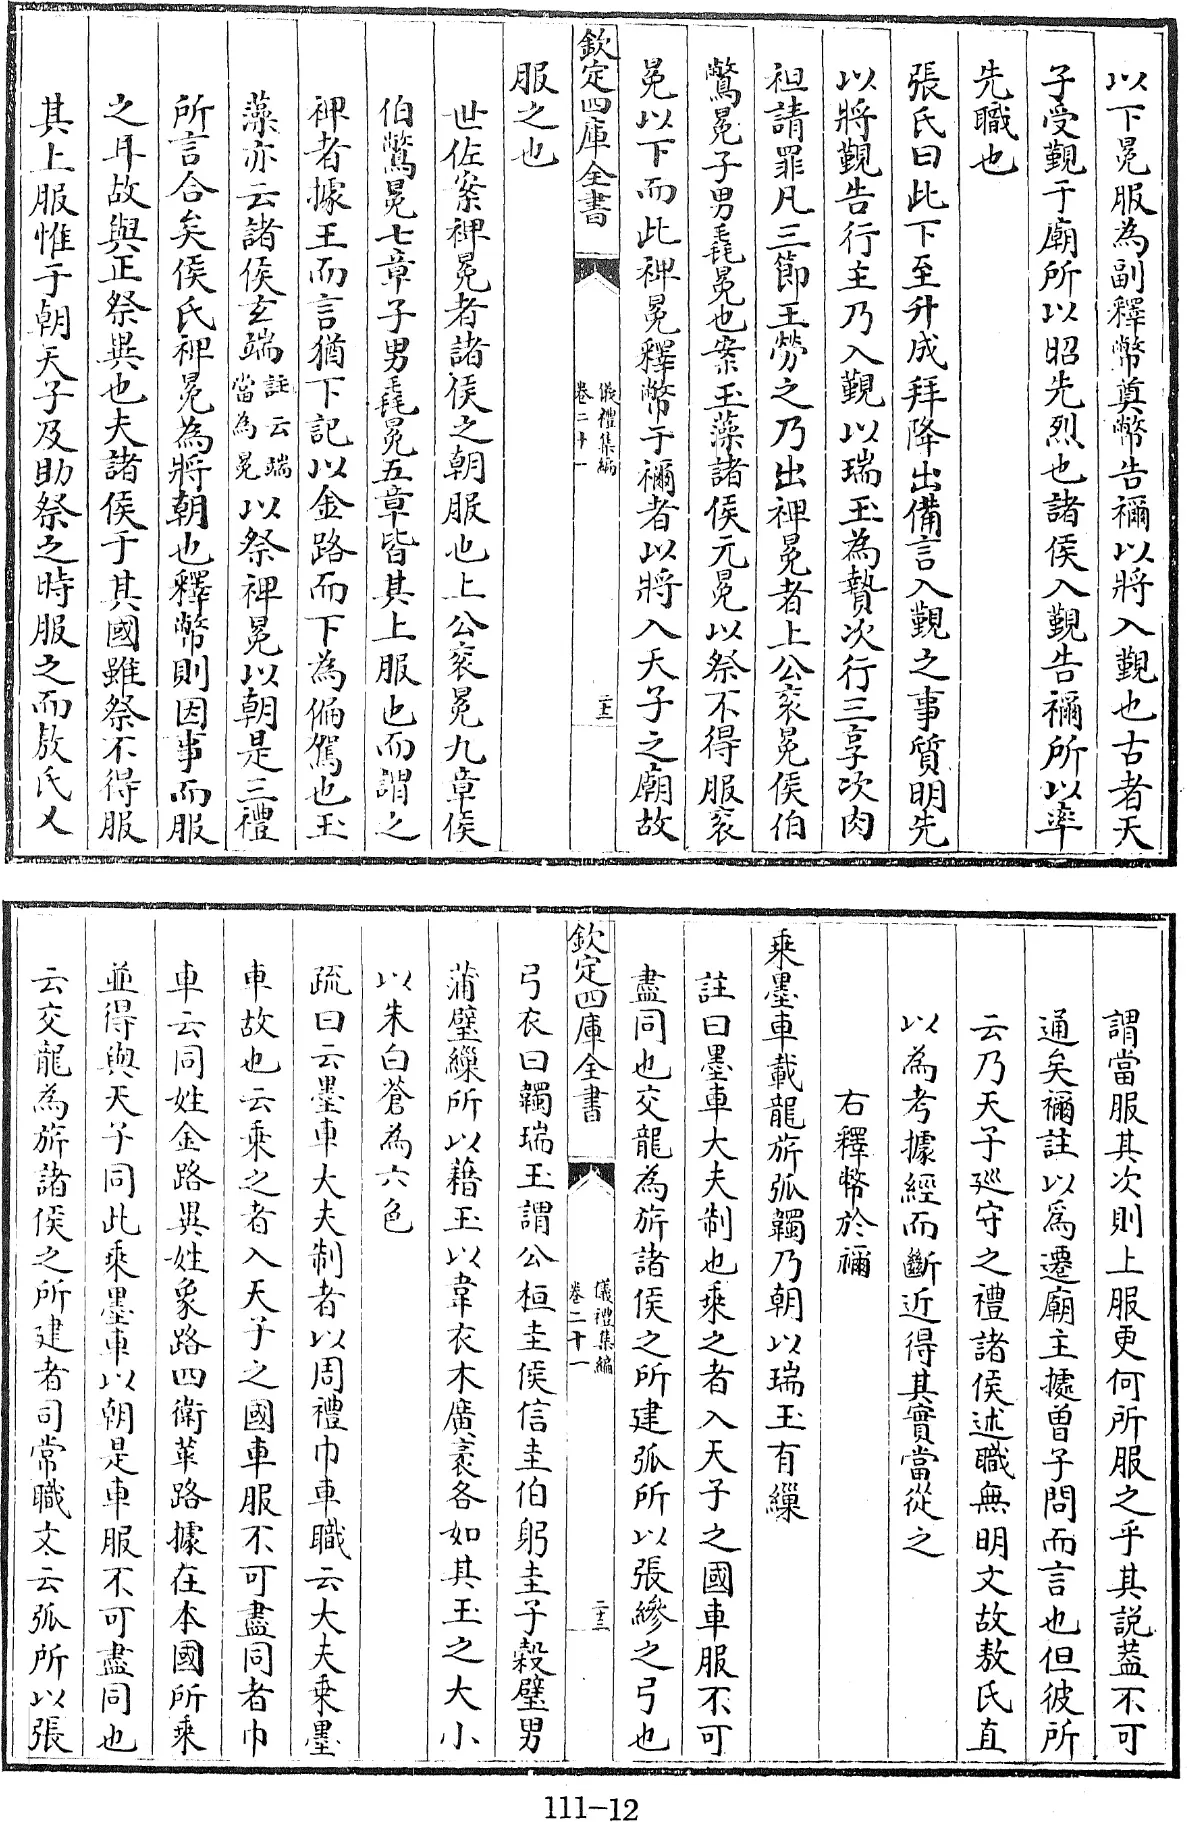 以下冕服為副釋幣奠幣告禰以將入覲也古者天
子受覲于廟所以昭先烈也諸侯入覲告禰所以率
先職也
張氏曰此下至升成拜降出備言入覲之事質明先
以將覲告行主乃入覲以瑞玉為贄次行三享次肉
袒請罪凡三節王勞之乃出裨冕者上公衮冕侯伯
鷩冕子男毳冕也案玉藻諸侯元冕以祭不得服衮
冕以下而此裨冕釋幣于禰者以將入天子之廟故
欽定四庫全書
儀禮集編
卷二十一
二十二
服之也
世佐案裨冕者諸侯之朝服也上公衮冕九章侯
伯鷩冕七章子男毳冕五章皆其上服也而謂之
裨者據王而言猶下記以金路而下為偏駕也玉
藻亦云諸侯玄端註云端當為冕以祭裨冕以朝是三禮
所言合矣侯氏裨冕為將朝也釋幣則因事而服
之耳故與正祭異也夫諸侯于其國雖祭不得服
其上服惟于朝天子及助祭之時服之而敖氏乂
謂當服其次則上服更何所服之乎其説葢不可
通矣禰註以爲遷廟主據曾子問而言也但彼所
云乃天子廵守之禮諸侯述職無明文故敖氏直
以為考據經而斷近得其實當從之
右釋幣於禰
乘墨車載龍旂弧韣乃朝以瑞玉有繅
註曰墨車大夫制也乘之者入天子之國車服不可
盡同也交龍為旂諸侯之所建弧所以張縿之弓也
欽定四庫全書
儀禮集編
卷二十一
二十三
弓衣曰韣瑞玉謂公桓圭侯信圭伯躬圭子穀璧男
蒲璧繅所以藉玉以韋衣木廣袤各如其玉之大小
以朱白蒼為六色
疏曰云墨車大夫制者以周禮巾車職云大夫乘墨
車故也云乘之者入天子之國車服不可盡同者巾
車云同姓金路異姓象路四衛革路據在本國所乘
並得與天子同此乘墨車以朝是車服不可盡同也
云交龍為旂諸侯之所建者司常職文云弧所以張
111-12